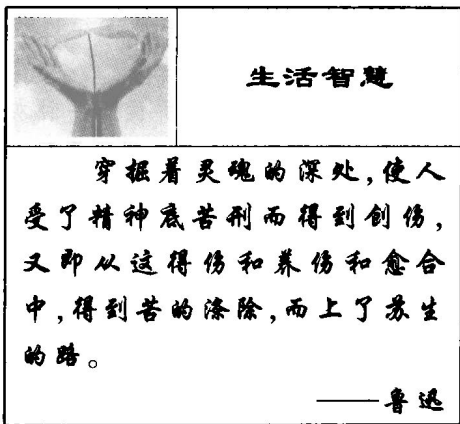 生活智慧
穿掘着灵魂的深处,使人
受了精神底苦刑而得到创伤,
又即从这得伤和养伤和愈合
中,得到苦的涤除,而上了苏生
的路。
——鲁迅